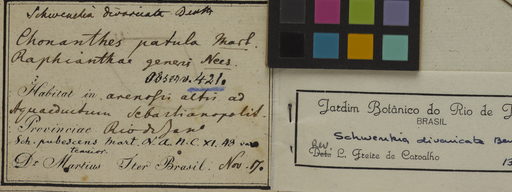 Schwenckia divaricata Benth
Chonanthes patula Mart.
Raphianthae generi Nees.
Observ. 421.
Habitat in arenosis altis ad
Aquaeductum Sebastianopolit.
Provinciae Rio de Jan.
Sch. pubescens Mart. N. A. N. C. XI. 49 var
tenuior.
Dr. Martius Iter Brasil. Nov. 17.
Jardim Botânico do Rio de J
BRASIL
Schwenkia divaricata Ben
Det. L. Freire de Carvalho
13